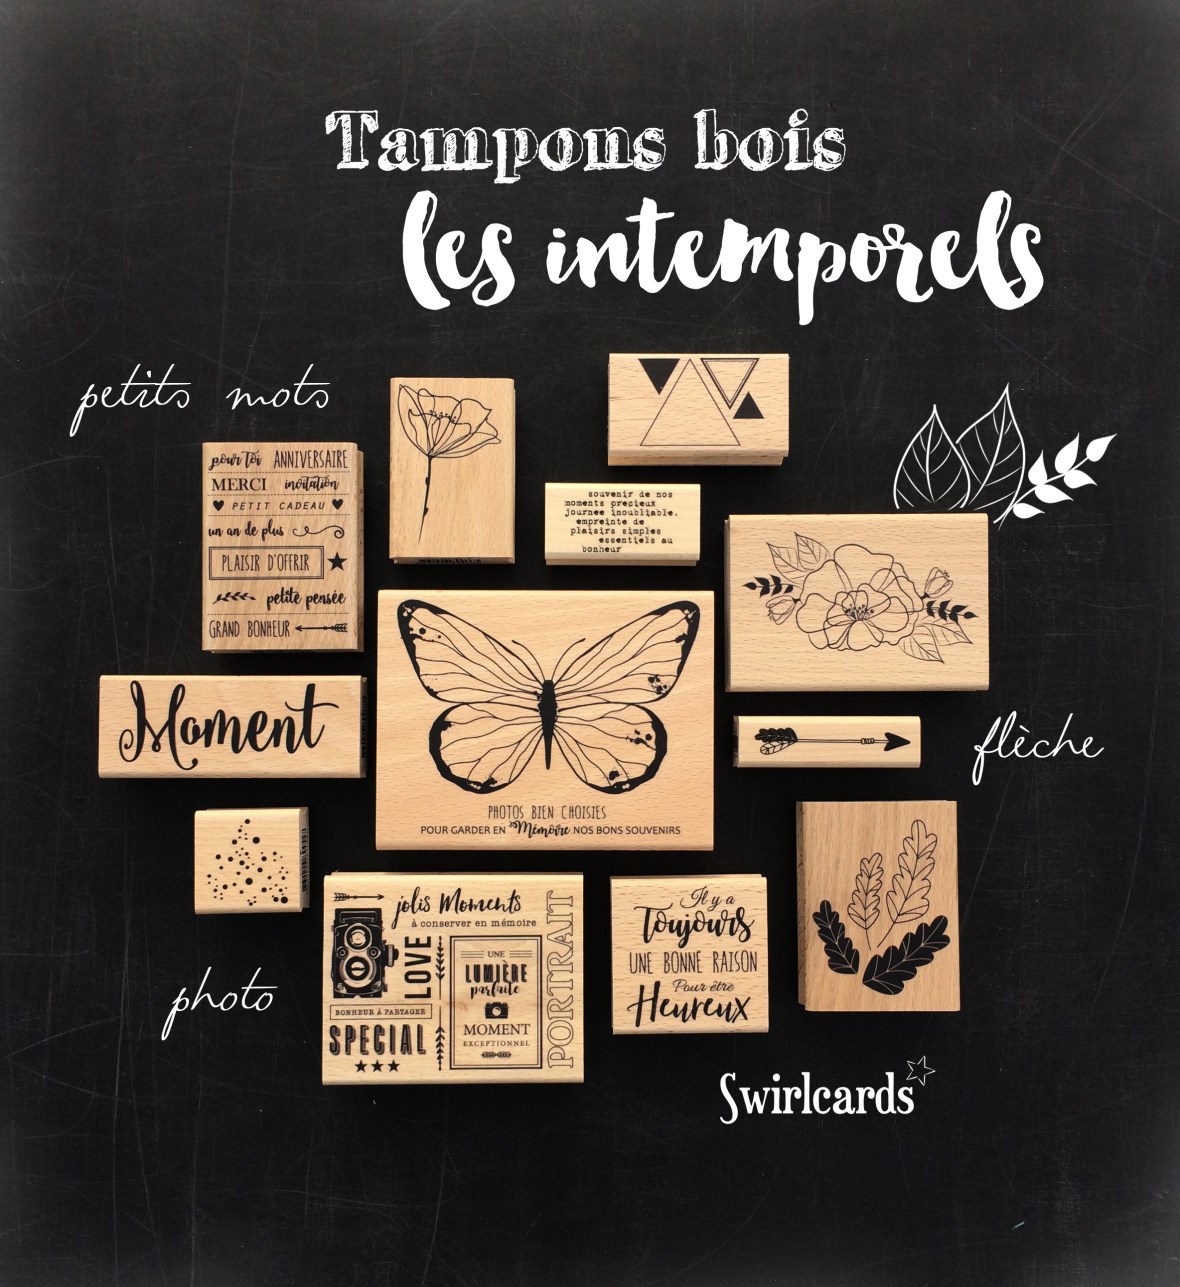 Tampons bois
les intemporels
petits mots
pour toi ANNIVERSAIRE
MERCI invitation
PETIT CADEAU
un an de plus
PLAISIR D'OFFRIR
petite pensée
GRAND BONHEUR
souvenir de nos
moments precieux
journee inoubliable.
empreinte de
plaisirs simples
essentiels au
bonheur
Moment
PHOTOS BIEN CHOISIES
POUR GARDER EN Mémoire NOS BONS SOUVENIRS
flèche
photo
jolis Moments
à conserver en mémoire
LOVE
PORTRAIT
UNE
LUMIÈRE
parfaite
MOMENT
EXCEPTIONNEL
BONHEUR À PARTAGER
SPECIAL
Il y a
Toujours
UNE BONNE RAISON
Pour être
Heureux
Swirlcards